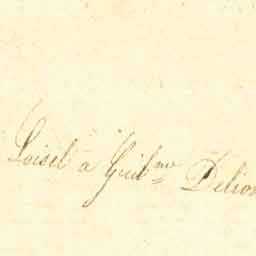 Loisel a Guilme Delion